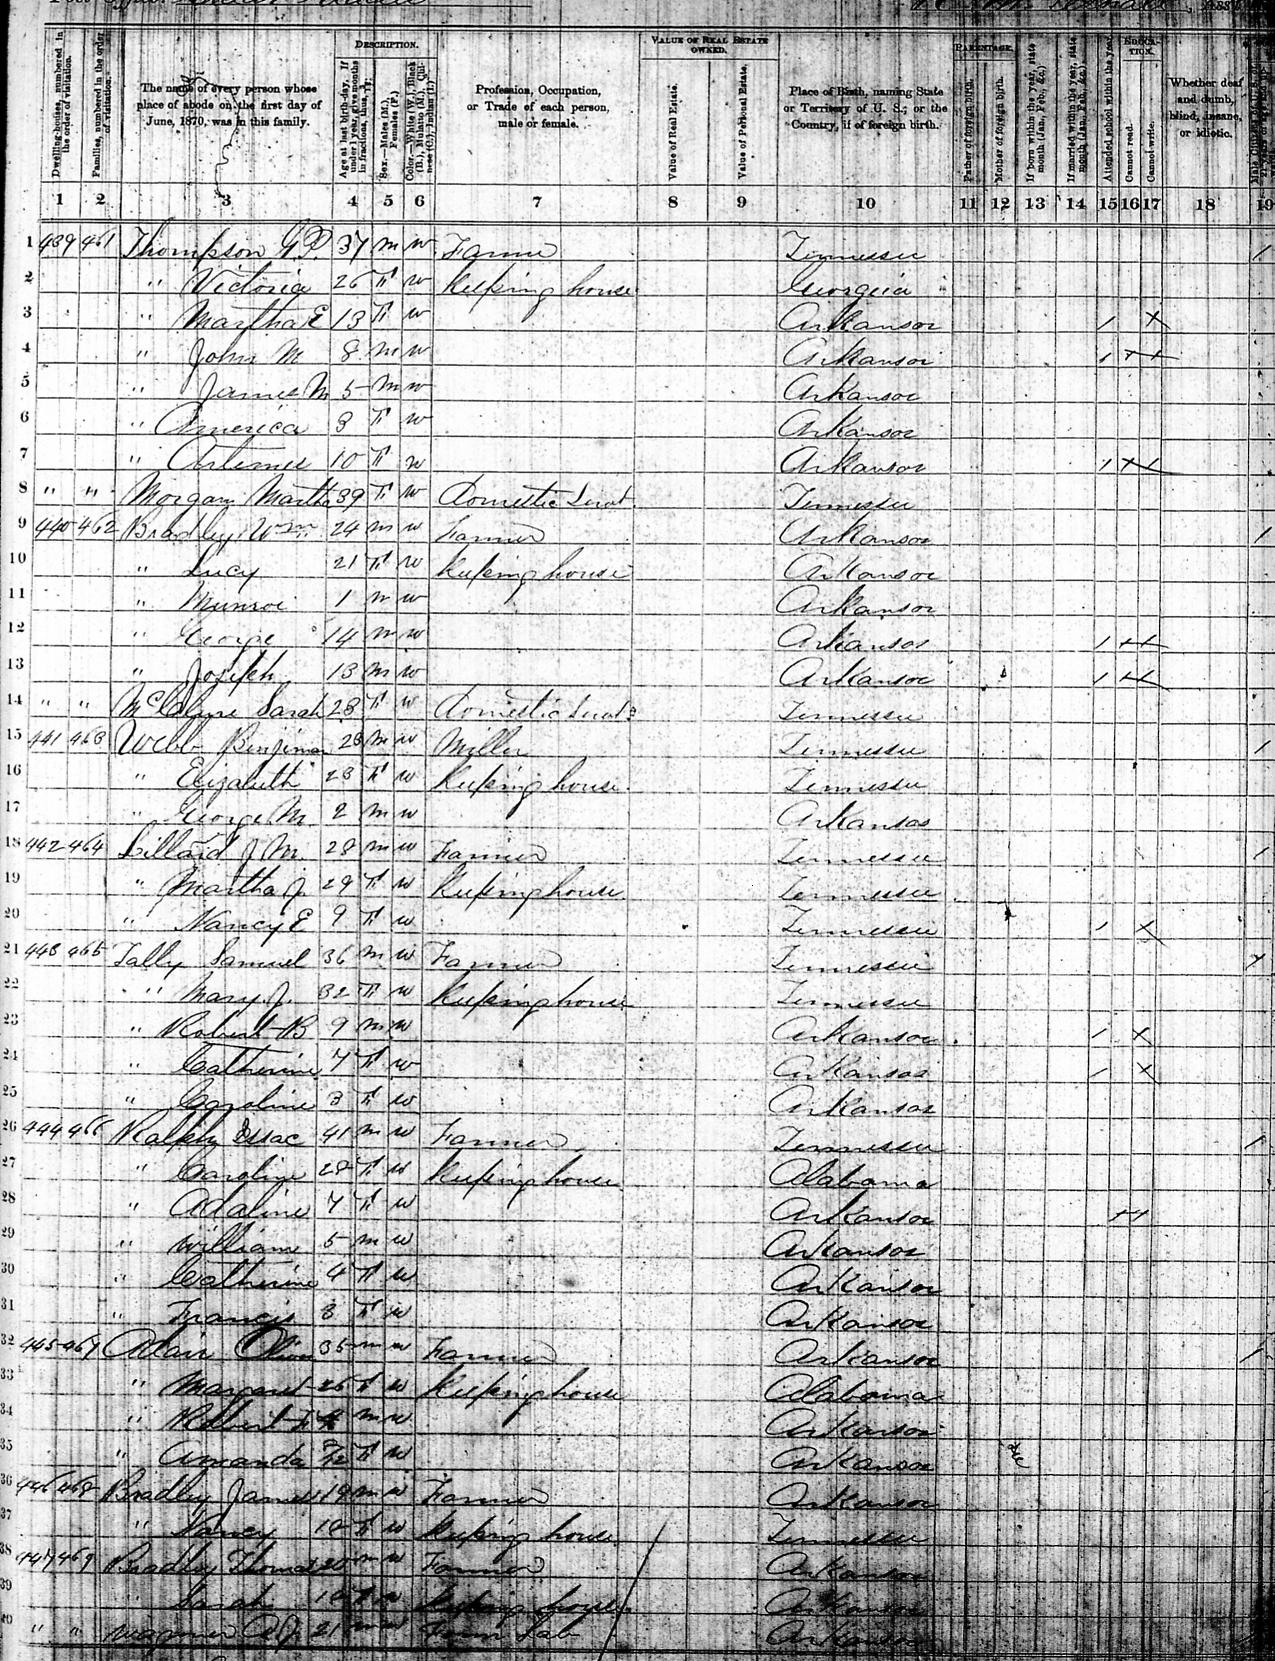 DESCRIPTION.
VALUE OF REAL ESTATE OWNED.
PARENTAGE.
EDUCATION.
Dwelling-houses, numbered in the order of visitation.
Families, numbered in the order of visitation.
The name of every person whose place of abode on the first day of June, 1870, was in this family.
Age at last birth-day. If under 1 year, give months in fractions, thus, 3/12.
Sex.—Males (M.), Females (F.)
Color.—White (W.), Black (B.), Mulatto (M.), Chinese (C.), Indian (I.)
Profession, Occupation, or Trade of each person, male or female.
Value of Real Estate.
Value of Personal Estate.
Place of Birth, naming State or Territory of U. S.; or the Country, if of foreign birth.
Father of foreign birth.
Mother of foreign birth.
If born within the year, state month (Jan., Feb., &c.)
If married within the year, state month (Jan., Feb., &c.)
Attended school within the year.
Cannot read.
Cannot write.
Whether deaf and dumb, blind, insane, or idiotic.
1 2 3 4 5 6 7 8 9 10 11 12 13 14 15 16 17 18 19
1 439 461 Thompson G.P. 37 m w Farmer Tennessee 1
2 " Victoria 26 F w Keeping house Georgia
3 " Martha E 13 F w Arkansas 1 x
4 " John M 8 m w Arkansas 1 + +
5 " James M 5 m w Arkansas
6 " America 3 F w Arkansas
7 " Artemis 10 F w Arkansas 1 + +
8 " " Morgan Martha 39 F w Domestic Servt. Tennessee
9 440 462 Bradley Wm 24 m w Farmer Arkansas 1
10 " Lucy 21 F w Keeping house Arkansas
11 " Munroe 1 m w Arkansas
12 " George 14 m w Arkansas 1 + +
13 " Joseph 13 m w Arkansas 1 + +
14 " " Sarah 28 F w Domestic Servt Tennessee
15 441 463 Webb Benjiman 28 m w Miller Tennessee 1
16 " Elizabeth 28 F w Keeping house Tennessee
17 " George M. 2 m w Arkansas
18 442 464 Lillard J M. 28 m w Farmer Tennessee 1
19 " Martha J. 29 F w Keeping house Tennessee
20 " Nancy E 9 F w Tennessee 1 x
21 443 465 Tally Samuel 36 m w Farmer Tennessee
22 " Mary J. 32 F w Keeping house Tennessee
23 " Robert B 9 m w Arkansas 1 x
24 " Catherine 7 F w Arkansas 1 x
25 " Caroline 3 F w Arkansas
26 444 466 Ralph Issac 41 m w Farmer Tennessee 1
27 " Caroline 28 F w Keeping house Alabama
28 " Adaline 7 F w Arkansas + +
29 " William 5 m w Arkansas
30 " Catherine 4 F w Arkansas
31 " Francis 3 F w Arkansas
32 445 467 Adair 35 m w Farmer Arkansas 1
33 " Margaret 26 F w Keeping house Alabama
34 " Robert m w Arkansas
35 " Amanda F w Arkansas
36 446 468 Bradley James 19 m w Farmer Arkansas
37 " Nancy 18 F w Keeping house Tennessee
38 447 469 Bradley Thomas 20 m w Farmer Arkansas
39 " Sarah 18 F w Keeping house Arkansas
40 " " A.J. 21 m w Farm Lab Arkansas